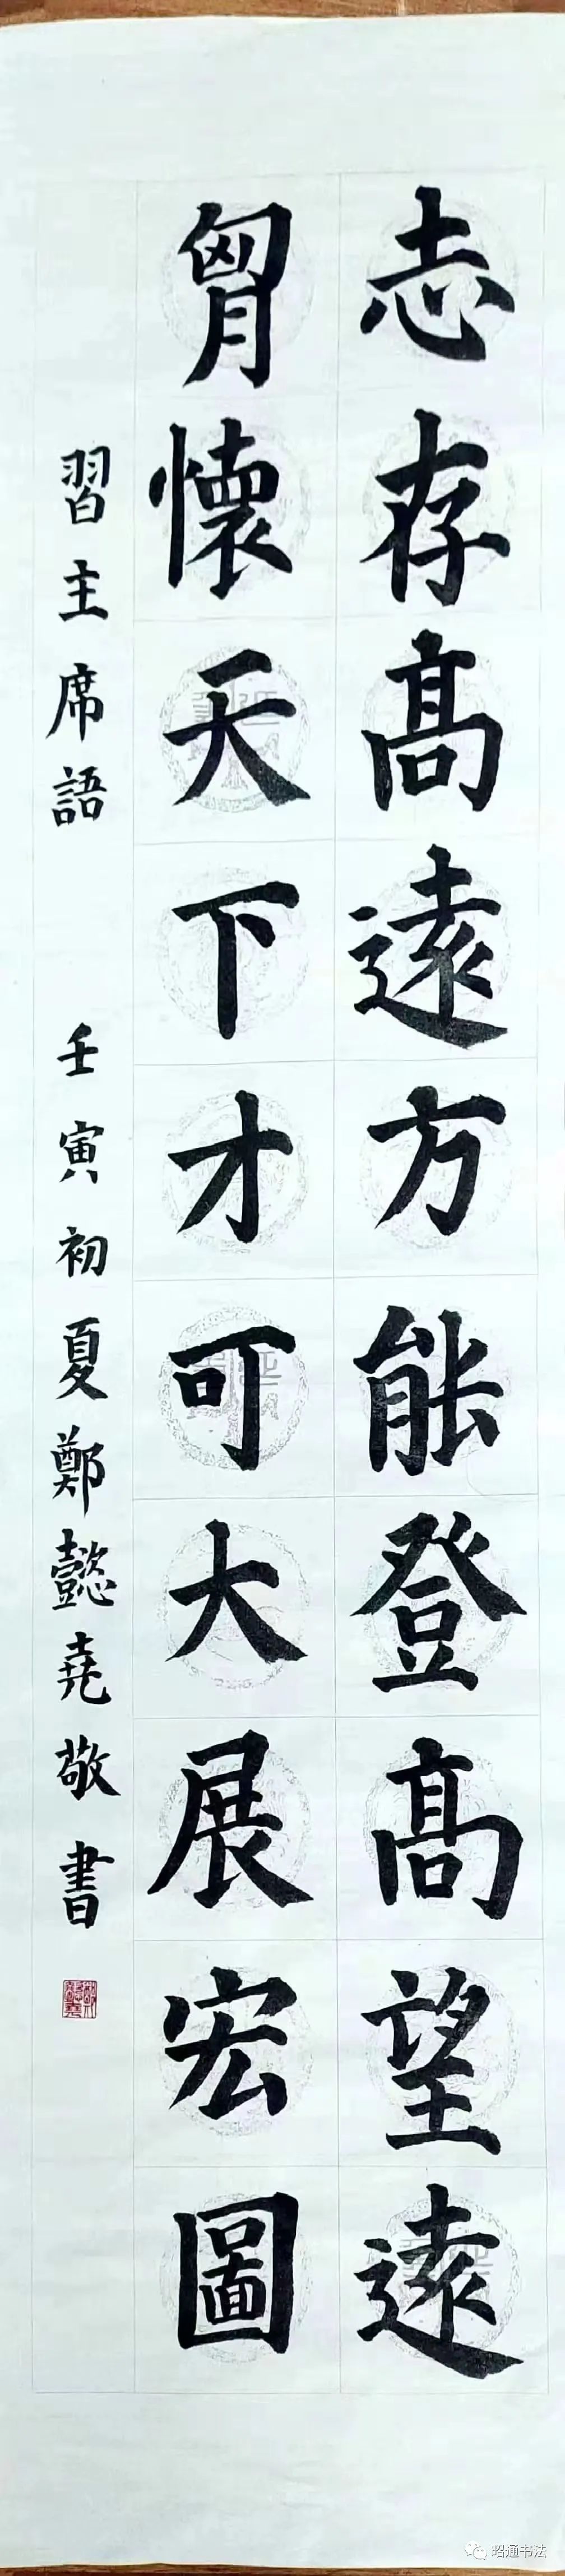 志存高遠方能登高望遠
胷懷天下才可大展宏圖
習主席語 壬寅初夏鄭懿堯敬書
昭通书法